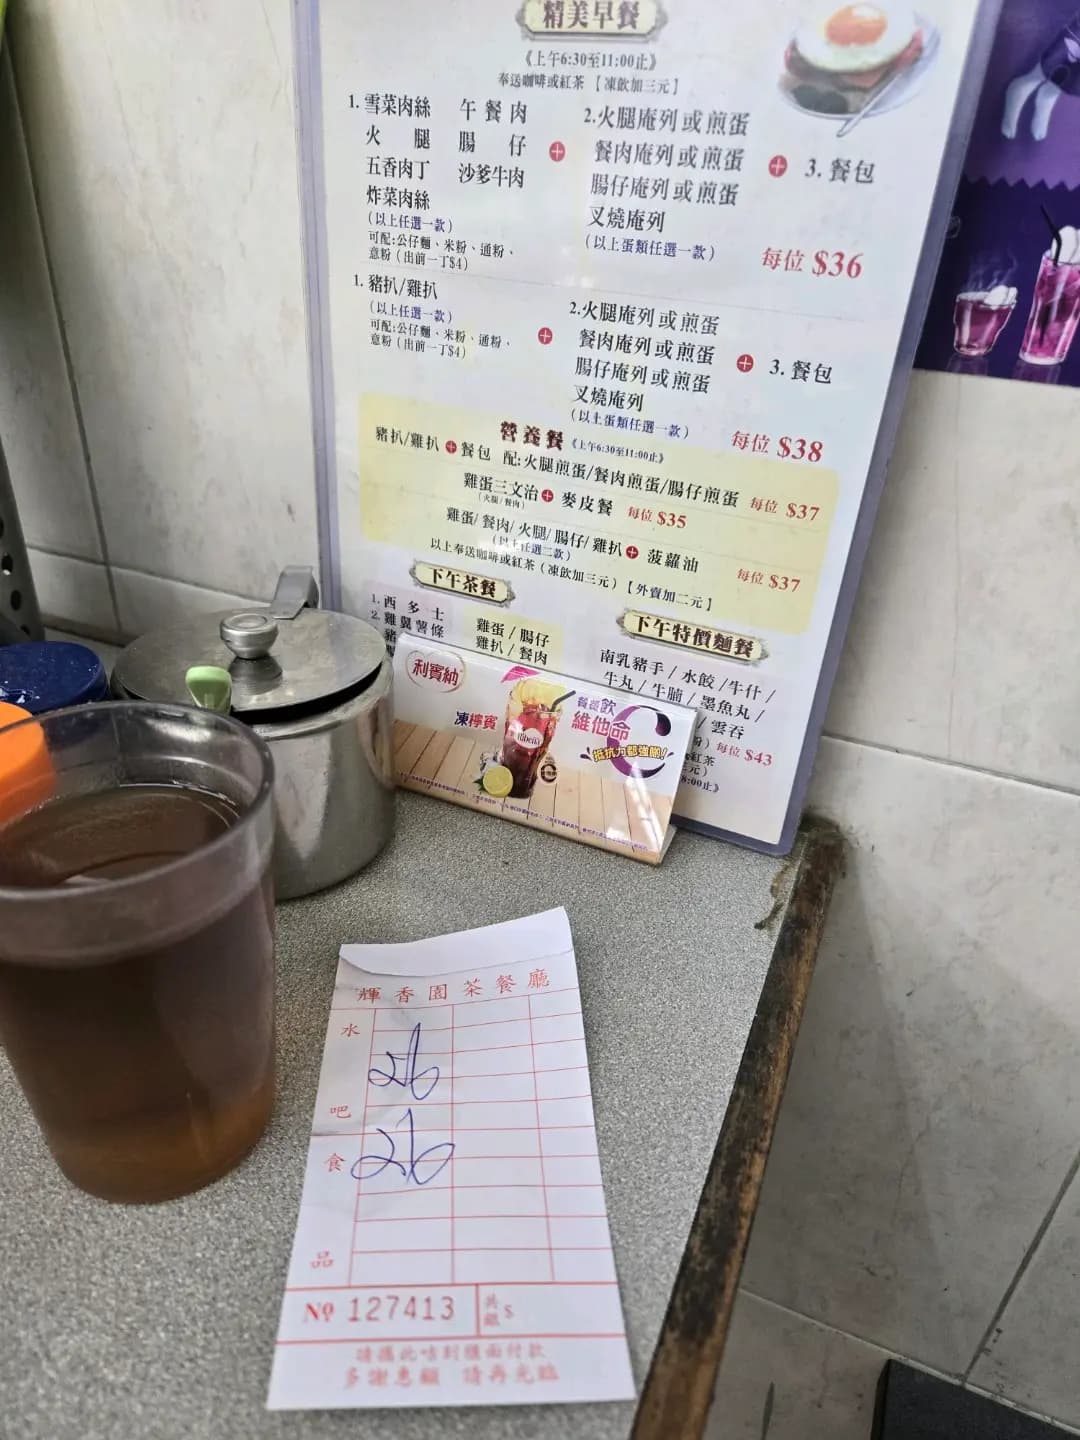 精美早餐
《上午6:30至11:00止》
奉送咖啡或紅茶【凍飲加三元】
1. 雪菜肉絲 午餐肉
火腿 腸仔
五香肉丁 沙爹牛肉
炸菜肉絲
(以上任選一款)
可配:公仔麵、米粉、通粉、
意粉(出前一丁$4)
+
2.火腿庵列或煎蛋
餐肉庵列或煎蛋
腸仔庵列或煎蛋
叉燒庵列
(以上蛋類任選一款)
+
3. 餐包
每位 $36
1. 豬扒/雞扒
(以上任選一款)
可配:公仔麵、米粉、通粉、
意粉(出前一丁$4)
+
2.火腿庵列或煎蛋
餐肉庵列或煎蛋
腸仔庵列或煎蛋
叉燒庵列
(以上蛋類任選一款)
+
3. 餐包
每位 $38
營養餐《上午6:30至11:00止》
豬扒/雞扒+餐包 配:火腿煎蛋/餐肉煎蛋/腸仔煎蛋 每位 $37
雞蛋三文治+麥皮餐 每位 $35
(火腿/餐肉)
雞蛋/餐肉/火腿/腸仔/雞扒+菠蘿油 每位 $37
(以上任選二款)
以上奉送咖啡或紅茶(凍飲加三元)【外賣加二元】
下午茶餐
1. 西多士
2. 雞翼薯條
豬
雞蛋/腸仔
雞扒/餐肉
下午特價麵餐
南乳豬手/水餃/牛什/
牛丸/牛腩/墨魚丸/
/雲吞
每位 $43
紅茶
利賓納
凍檸賓
Ribena
餐搭飲
維他命
C
抵抗力都強啲!
輝香園茶餐廳
水
吧
食
品
26
26
№ 127413
共銀 $
請攜此咭到櫃面付款
多謝惠顧 請再光臨